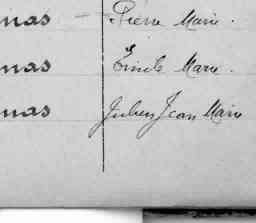 mas Pierre Marie.
mas Emile Marie.
mas Julien Jean Marie